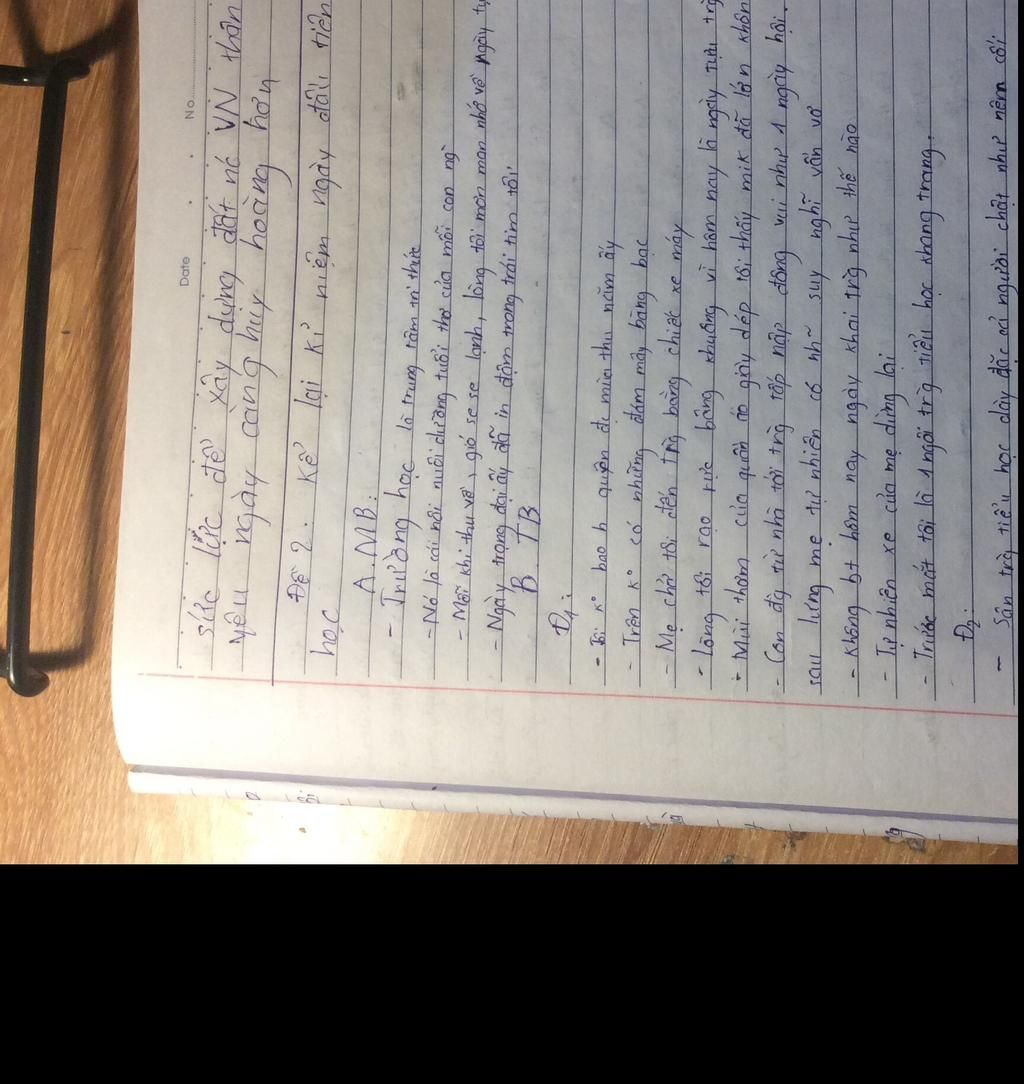 Date No
sức lực để xây dựng đất nc VN thân
yêu ngày càng huy hoàng hơn
Đề 2. Kể lại kỉ niệm ngày đầu tiên
học
A. MB:
- Trường học là trung tâm tri thức
- Nó là cái nôi nuôi dưỡng tuổi thơ của mỗi con ng
- Mỗi khi thu về, gió se se lạnh, lòng tôi mơn man nhớ về ngày tự
- Ngày trọng đại ấy đã in đậm trong trái tim tôi.
B. TB
Đ1:
- Tôi ko bao h quên đc mùa thu năm ấy
- Trên ko có những đám mây bàng bạc
- Mẹ chở tôi đến trg bằng chiếc xe máy
- Lòng tôi rạo rực bâng khuâng vì hôm nay là ngày tựu trg
- Mùi thơm của quần áo giày dép tôi thấy mik đã lớn khôn
- Con đg từ nhà tới trg tấp nập đông vui như 1 ngày hội.
sau lưng mẹ tự nhiên có nh~ suy nghĩ vẩn vơ
- Không bt hôm nay ngày khai trg như thế nào
- Tự nhiên xe của mẹ dừng lại
- Trước mắt tôi là 1 ngôi trg tiểu học khang trang.
Đ2:
- Sân trg tiểu học dày đặc cả người chật như nêm cối